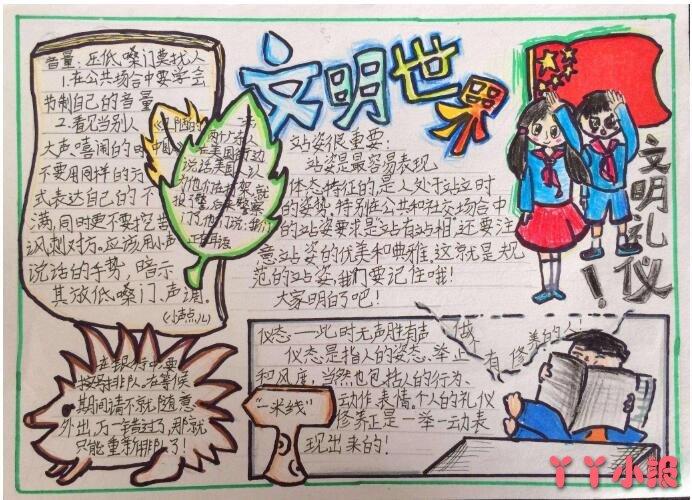 文明世界
音量：压低嗓门莫扰人
1.在公共场合中要学会
节制自己的音量
2.看见当别人
大声喧闹的时
不要用同样的方
式表达自己的不
满,同时更不要挖苦
讽刺对方。应该用小声
说话的手势，暗示
其放低嗓门、声调。
(小声点儿)
两个广东
说话
正在
站姿很重要：
站姿是最容易表现
体态特征的是人处于站立时
的姿势。特别在公共和社交场合中
的站姿要求是“站有站相”,还要注
意站姿的优美和典雅。这就是规
范的站姿,我们要记住哦！
大家明白了吧！
文明礼仪！
在银行中要
按秩序排队,在等候
期间请不就随意
外出,万一错过了,那就
只能重新排队了！
“一米线”
仪态——此时无声胜有声
做有修养的人
仪态是指人的姿态、举止
和风度，当然也包括人的行为、
动作表情。个人的礼仪
修养正是一举一动表
现出来的！
丫丫小报